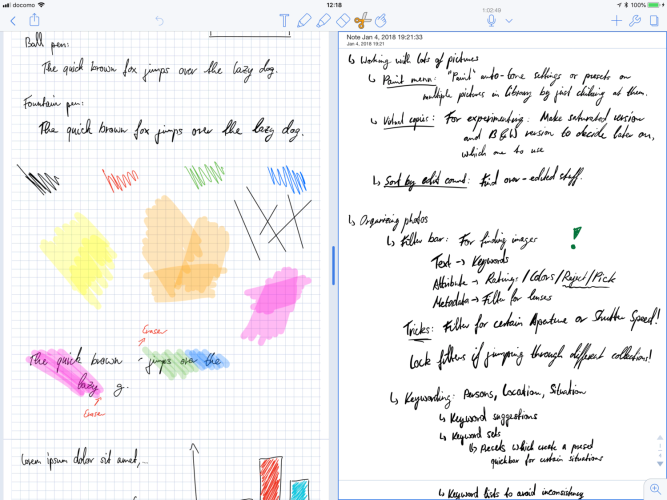 docomo
12:18
100%
1:02:49
Ball pen:
The quick brown fox jumps over the lazy dog.
Fountain pen:
The quick brown fox jumps over the lazy dog.
Eraser
The quick brown jumps over the
lazy g.
Eraser
Lorem ipsum dolor sit amet,...
Note Jan 4, 2018 19:21:33
Jan 4, 2018 19:21
↳ Working with lots of pictures
↳ Paint menu: "Paint" auto-tone settings or presets on
multiple pictures in library by just clicking at them.
↳ Virtual copies: For experimenting. Make saturated version
and B&W version to decide later on,
which one to use
↳ Sort by edit count: Find over-edited stuff.
↳ Organizing photos
↳ Filter bar: For finding images !
Text → Keywords
Attribute → Ratings / Colors / Reject / Pick
Metadata → Filter for lenses
Tricks: Filter for certain Aperture or Shutter Speed!
Lock filters if jumping through different collections!
↳ Keywording: Persons, Location, Situation
↳ Keyword suggestions
↳ Keyword sets
↳ Presets which create a preset
quickbar for certain situations
↳ Keyword lists to avoid inconsistency